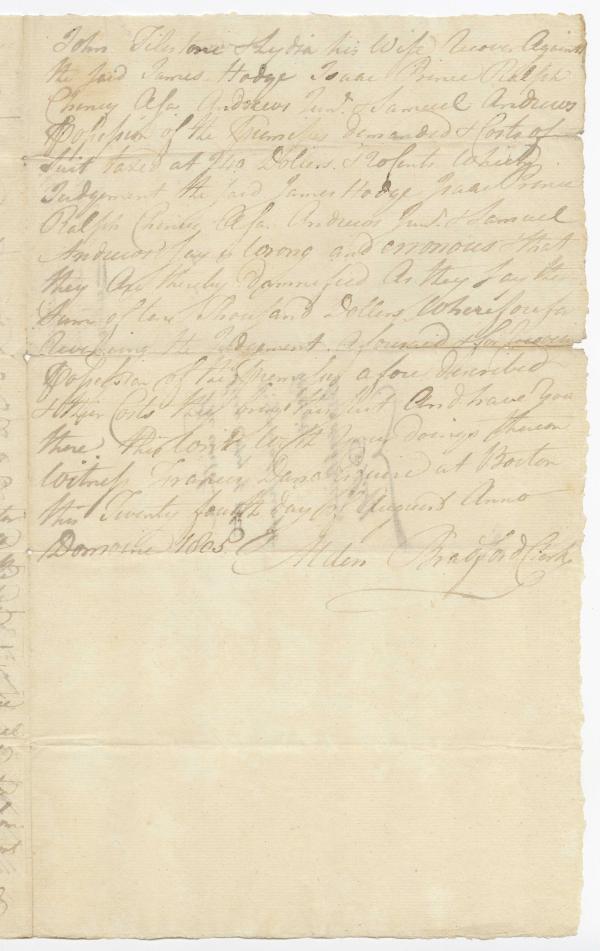 John Tilestone & Lydia his Wife recover Against
the said James Hodge Isaac Prince Ralph
Cheney Asa Andrews Junr. & Samuel Andrews
Possession of the Premises demanded & Costs of
Suit taxed at Dollers & Cents Which
Judgement the said James Hodge Isaac Prince
Ralph Cheney Asa Andrews Junr. & Samuel
Andrews say is wrong and erronous & that
they are thereby Damnified As they say the
Sum of Thousand Dollers Wherefore for
reversing the Judgement aforesaid &
Possession of the Premises afore described
& their Costs they bring this suit And have you
there this Writ With your doings therein
Witness Francis Dana Esquire at Boston
this Twenty fourth day of August Anno
Domini 1805. Alden Bradford Clerk